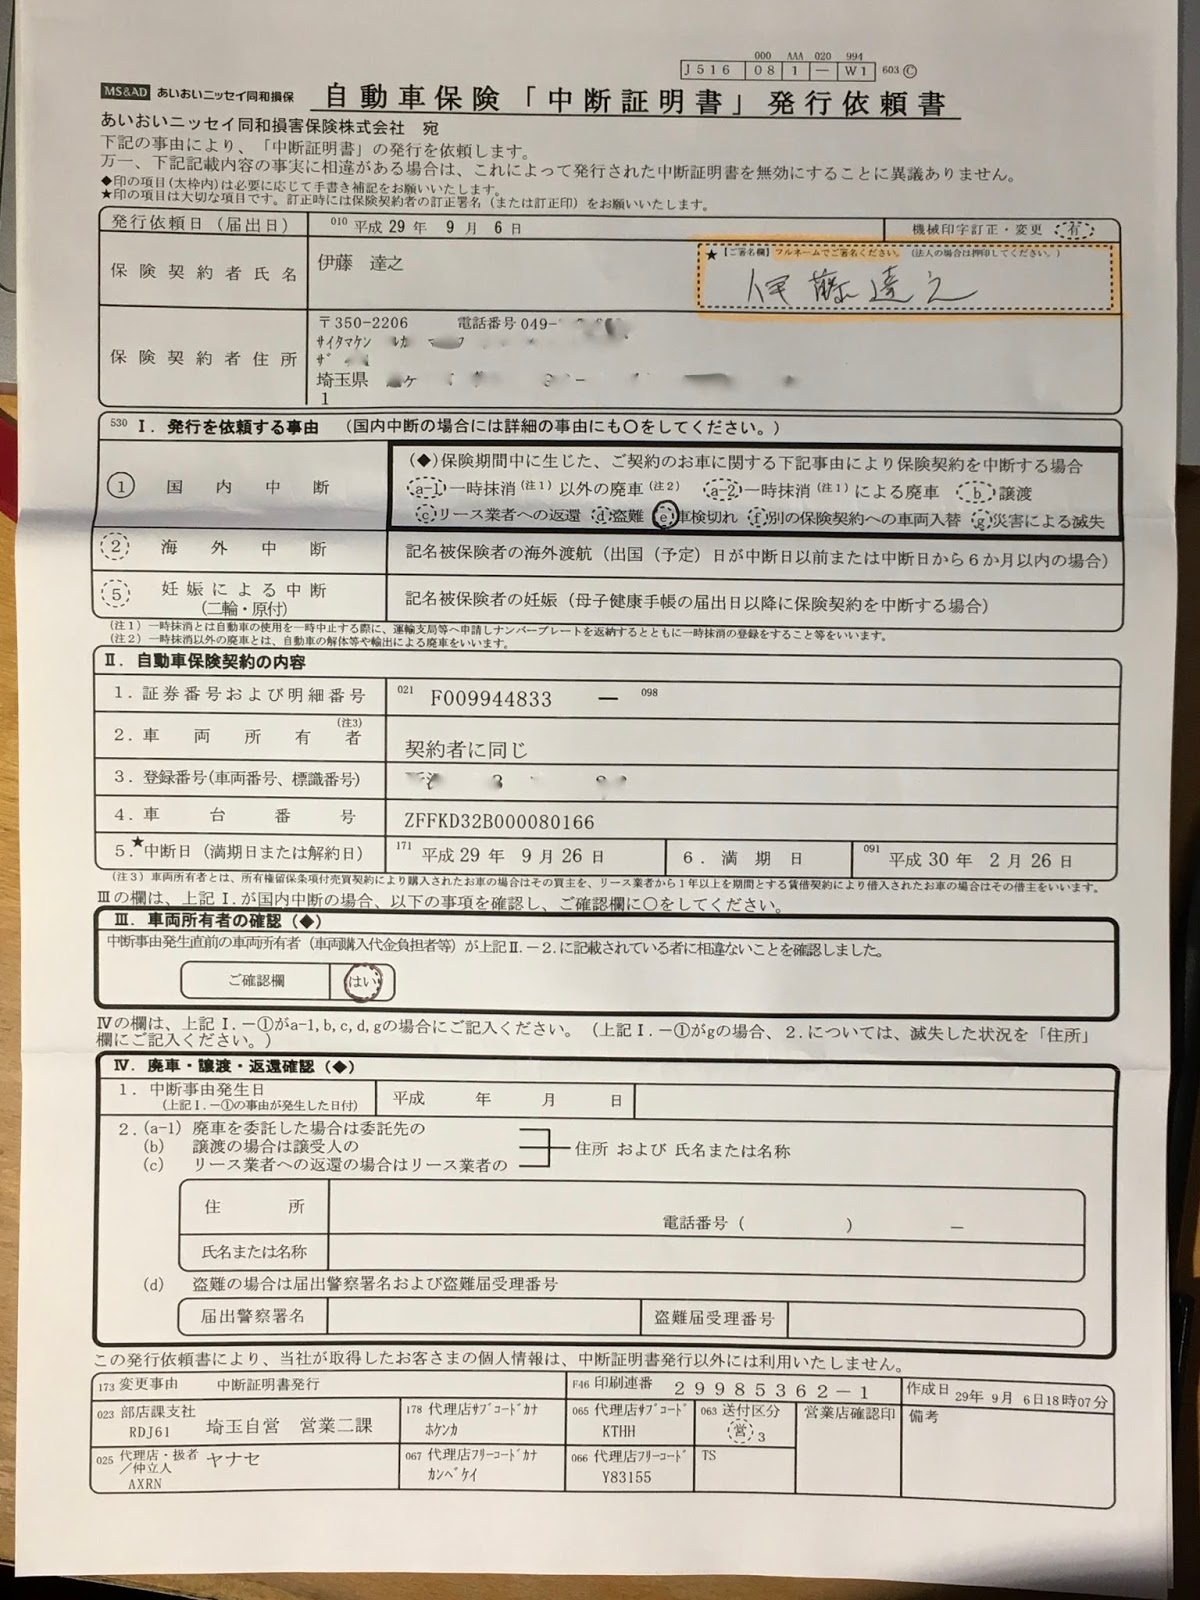 000 AAA 020 994
J516 08 1 — W1 603 Ⓒ
MS&AD あいおいニッセイ同和損保 自動車保険「中断証明書」発行依頼書
あいおいニッセイ同和損害保険株式会社 宛
下記の事由により、「中断証明書」の発行を依頼します。
万一、下記記載内容の事実に相違がある場合は、これによって発行された中断証明書を無効にすることに異議ありません。
◆印の項目(太枠内)は必要に応じて手書き補記をお願いいたします。
★印の項目は大切な項目です。訂正時には保険契約者の訂正署名（または訂正印）をお願いいたします。
発行依頼日（届出日） 010 平成 29 年 9 月 6 日 機械印字訂正・変更 有
保険契約者氏名 伊藤 達之
★【ご署名欄】フルネームでご署名ください。（法人の場合は押印してください。）
伊藤達之
保険契約者住所 〒350-2206 電話番号 049-
サイタマケン
ザ
埼玉県 ケ
1
530 Ⅰ．発行を依頼する事由 （国内中断の場合には詳細の事由にも○をしてください。）
① 国内中断 (◆)保険期間中に生じた、ご契約のお車に関する下記事由により保険契約を中断する場合
a-1 一時抹消(注1)以外の廃車(注2) a-2 一時抹消(注1)による廃車 b 譲渡
c リース業者への返還 d 盗難 e 車検切れ f 別の保険契約への車両入替 g 災害による滅失
② 海外中断 記名被保険者の海外渡航（出国（予定）日が中断日以前または中断日から6か月以内の場合）
⑤ 妊娠による中断 (二輪・原付) 記名被保険者の妊娠（母子健康手帳の届出日以降に保険契約を中断する場合）
(注1）一時抹消とは自動車の使用を一時中止する際に、運輸支局等へ申請しナンバープレートを返納するとともに一時抹消の登録をすること等をいいます。
(注2）一時抹消以外の廃車とは、自動車の解体等や輸出による廃車をいいます。
Ⅱ．自動車保険契約の内容
1．証券番号および明細番号 021 F009944833 — 098
2．車両所有者(注3) 契約者に同じ
3．登録番号(車両番号、標識番号) 3
4．車台番号 ZFFKD32B000080166
5．★中断日（満期日または解約日） 171 平成 29 年 9 月 26 日 6．満期日 091 平成 30 年 2 月 26 日
(注3）車両所有者とは、所有権留保条項付売買契約により購入されたお車の場合はその買主を、リース業者から1年以上を期間とする賃貸借契約により借入されたお車の場合はその借主をいいます。
Ⅲの欄は、上記Ⅰ.が国内中断の場合、以下の事項を確認し、ご確認欄に○をしてください。
Ⅲ．車両所有者の確認（◆）
中断事由発生直前の車両所有者（車両購入代金負担者等）が上記Ⅱ.－2.に記載されている者に相違ないことを確認しました。
ご確認欄 はい
Ⅳの欄は、上記Ⅰ.－①がa-1, b, c, d, gの場合にご記入ください。（上記Ⅰ.－①がgの場合、2.については、滅失した状況を「住所」
欄にご記入ください。）
Ⅳ．廃車・譲渡・返還確認（◆）
1．中断事由発生日 平成 年 月 日
(上記Ⅰ.－①の事由が発生した日付)
2．(a-1) 廃車を委託した場合は委託先の
(b) 譲渡の場合は譲受人の 住所 および 氏名または名称
(c) リース業者への返還の場合はリース業者の
住所
電話番号（ ） —
氏名または名称
(d) 盗難の場合は届出警察署名および盗難届受理番号
届出警察署名 盗難届受理番号
この発行依頼書により、当社が取得したお客さまの個人情報は、中断証明書発行以外には利用いたしません。
173 変更事由 中断証明書発行 F46 印刷連番 29985362-1 作成日 29年 9月 6日18時07分
023 部店課支社 RDJ61 埼玉自営 営業二課 178 代理店サブコードカナ ホケンカ 065 代理店サブコード KTHH 063 送付区分 営 3 営業店確認印 備考
025 代理店・扱者／仲立人 AXRN ヤナセ 067 代理店フリーコードカナ カンベケイ 066 代理店フリーコード Y83155 TS